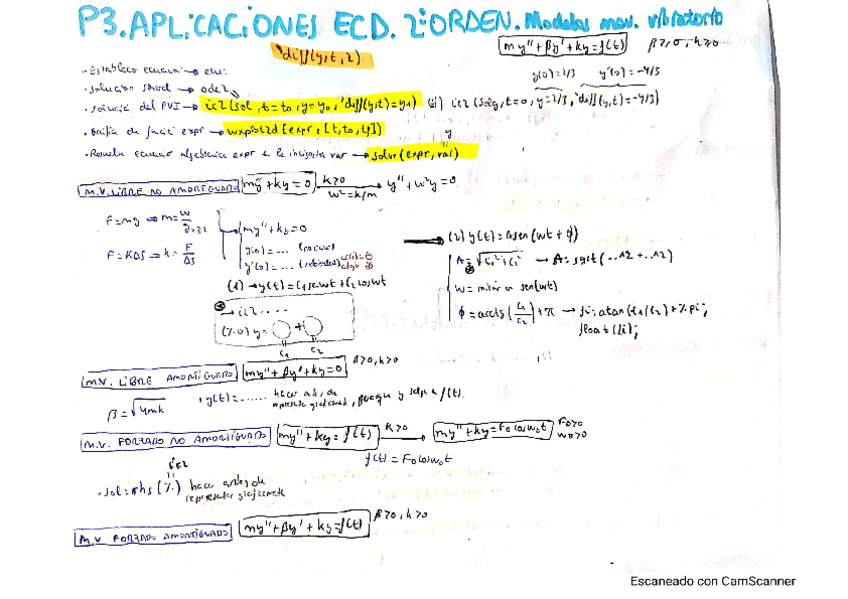 P3. APLICACIONES ECD. 2º ORDEN. Modelos mov. vibratorio
'diff(y,t,2)
my''+βy'+ky=f(t) β≥0, k≥0
y(0)=2/3 y'(0)=-4/3
· Establece ecuación → ecu:
· solución general → ode2
· solución del PVI → ic2(sol, t=t0, y=y0, 'diff(y,t)=y1) ic2(solg, t=0, y=2/3, 'diff(y,t)=-4/3)
· Gráfica de función expr → wxplot2d [expr, [t,t0,tf]]
y
· Resuelve ecuación algebraica expr = la incógnita var → solve(expr, var)
M.V. LIBRE NO AMORTIGUADO my''+ky=0 k>0 → y''+w²y=0
w²=k/m
F=mg → m=w/g=32
F=KΔS → k=F/ΔS
my''+ky=0
y(0)=...
y'(0)=...
(1) → y(t)=C1senwt+C2coswt
(2) y(t)=Asen(wt+ϕ)
A=√C1²+C2² → A=sqrt(...^2+...^2)
w= mirar en sen(wt)
ϕ=arctg(C1/C2)+π → fi: atan(C1/C2)+%pi;
float(fi);
→ ic2....
(%o) y= +
C1 C2
M.V. LIBRE AMORTIGUADO my''+βy'+ky=0 β>0, k>0
β=√4mk
· y(t)=...... hacer antes de
representar gráficamente, porque y
f(t).
M.V. FORZADO NO AMORTIGUADO my''+ky=f(t) k>0 → my''+ky=F0cosw0t F0>0
w0>0
f(t)=F0cosw0t
ic2
· sol:rhs(%) hacer antes de
representar gráficamente
M.V FORZADO AMORTIGUADO my''+βy'+ky=f(t) β>0, k>0
Escaneado con CamScanner